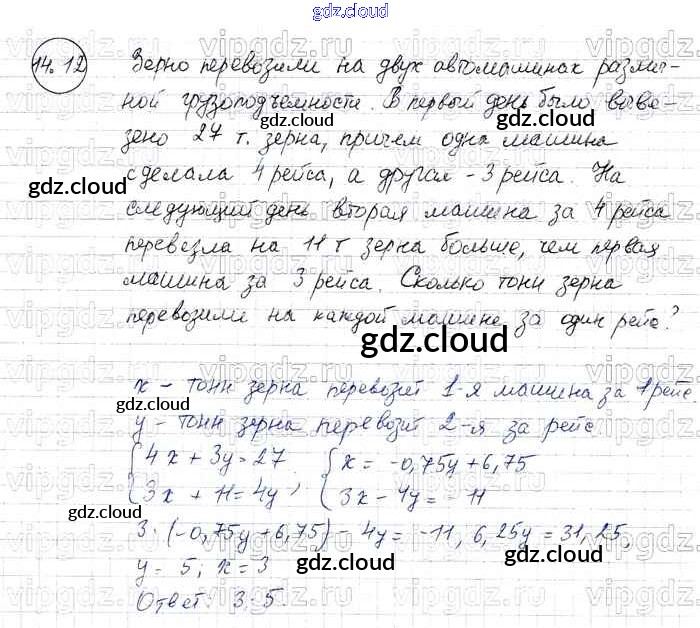 gdz.cloud
14.12 Зерно перевозили на двух автомашинах различ-
ной грузоподъемности. В первый день было выве-
gdz.cloud gdz.cloud
зено 27 т. зерна, причем одна машина
сделала 4 рейса, а другая - 3 рейса. На
gdz.cloud gdz.cloud
следующий день вторая машина за 4 рейса
перевезла на 11 т зерна больше, чем первая
машина за 3 рейса. Сколько тонн зерна
перевозили на каждой машине за один рейс?
gdz.cloud
x - тонн зерна перевозит 1-я машина за 1 рейс.
gdz.cloud
y - тонн зерна перевозит 2-я за рейс
4x + 3y = 27 x = -0,75y + 6,75
gdz.cloud
3x + 11 = 4y , 3x - 4y = -11
gdz.cloud
3·(-0,75y + 6,75) - 4y = -11, 6,25y = 31,25,
y = 5; x = 3
gdz.cloud gdz.cloud
Ответ: 3; 5.